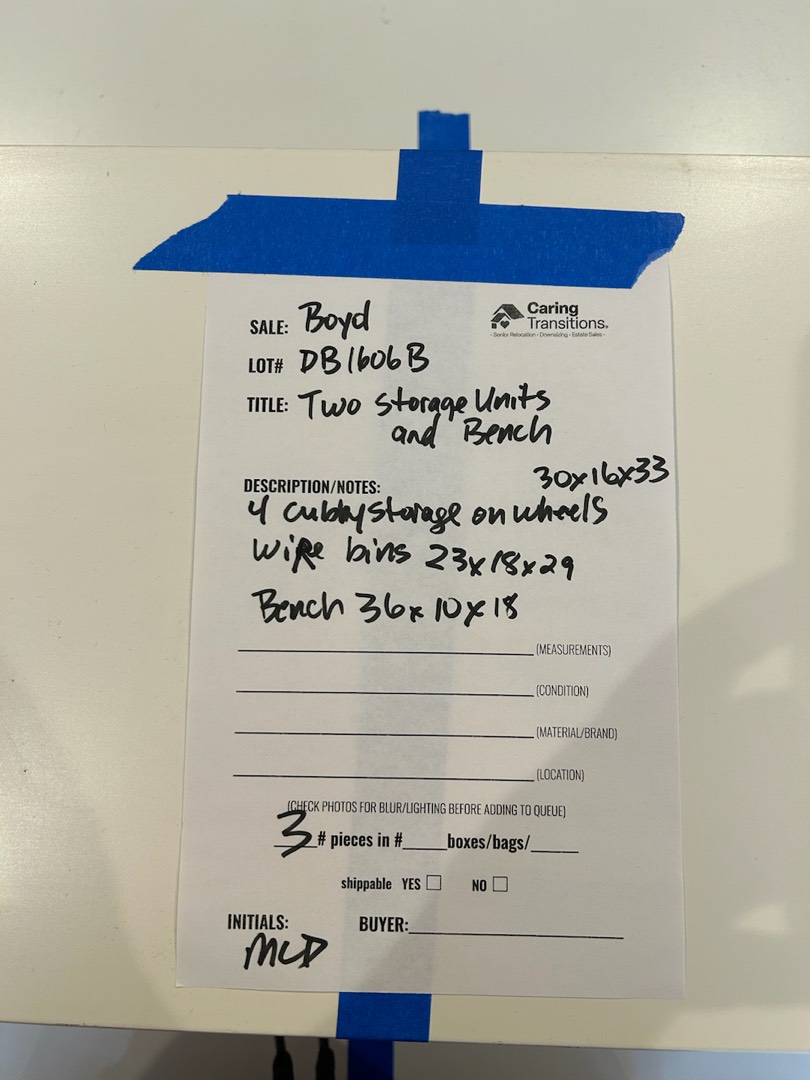 Caring
Transitions®
- Senior Relocation - Downsizing - Estate Sales -
SALE: Boyd
LOT# DB1606B
TITLE: Two Storage Units
and Bench
30x16x33
DESCRIPTION/NOTES:
4 cubby storage on wheels
Wire bins 23x18x29
Bench 36x10x18
(MEASUREMENTS)
(CONDITION)
(MATERIAL/BRAND)
(LOCATION)
(CHECK PHOTOS FOR BLUR/LIGHTING BEFORE ADDING TO QUEUE)
3 # pieces in #_____boxes/bags/_____
shippable YES ☐ NO ☐
INITIALS: BUYER:
MCD